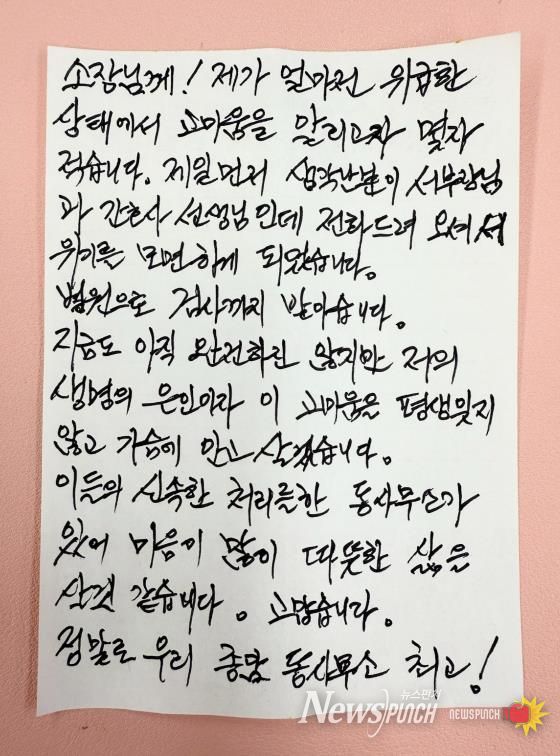 소장님께! 제가 얼마전 위급한
상태에서 고마움을 알리고자 몇자
적습니다. 제일먼저 생각난분이 서부장님
과 간호사 선생님인데 전화드려 오셔서
위기를 모면하게 되었습니다.
병원으로 검사까지 받아습니다.
지금도 아직 완전하진 않지만 저의
생명의 은인이라 이 고마움을 평생잊지
않고 가슴에 안고 살겠습니다.
이들의 신속한 처리를한 동사무소가
있어 마음이 많이 따뜻한 삶을
산것 같습니다. 고맙습니다.
정말로 우리 중앙 동사무소 최고!
뉴스펀치
NEWSPUNCH NEWSPUNCH